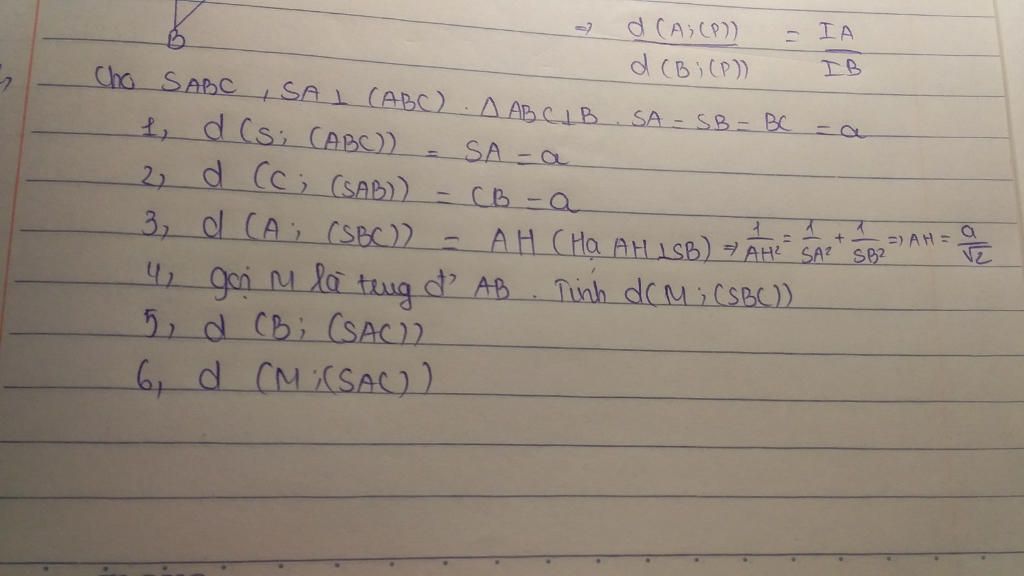 B
=> d(A;(P)) / d(B;(P)) = IA / IB
Cho SABC, SA⊥(ABC). ΔABC⊥B. SA = SB = BC = a
1, d(S; (ABC)) = SA = a
2, d(C; (SAB)) = CB = a
3, d(A; (SBC)) = AH (Hạ AH⊥SB) => 1/AH² = 1/SA² + 1/SB² => AH = a/√2
4, gọi M là tung đ' AB. Tính d(M; (SBC))
5, d(B; (SAC))
6, d(M; (SAC))